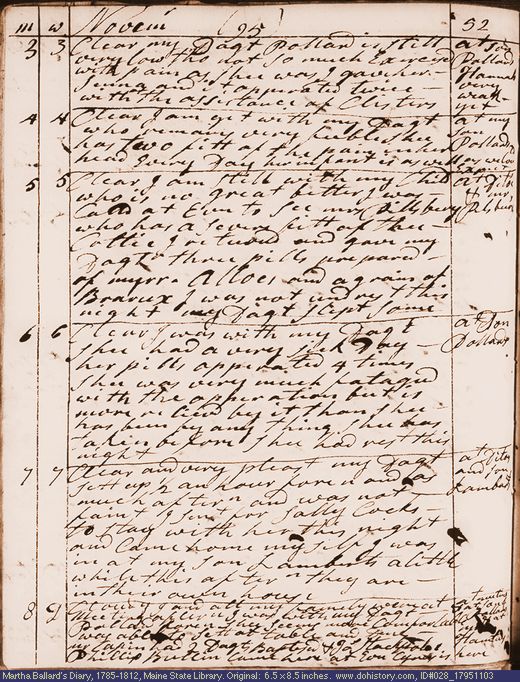 m w Novem 95 32
3 3 Clear my Dagt Pollard is still at Son
very low tho not so much Exercised Pollard
with pain as shee was I gave her Hannah
Senna and it opperated twice very
with the assistance of Clisters weak
yet
4 4 Clear I am yet with my Dagt at my
who remains very feeble shee Son
has two fitt of the pain in her Pollard
head Every Day his infant is as well
5 5 Clear I am still with my Child at Ditto
who is no great better I was & mr
Calld at Even to See mrs Pilsbery Pilsbery
who has a sever fitt of the
Collic I returnd and gave my
Dagt three pills prepared
of myrr Alloes and a grain of
I was not undrest this
night my Dagt Slept Some
6 6 Clear I was with my Dagt at Son
Shee had a very sick Day Pollards
her pills opperated 4 times
Shee was very much fatagud
with the opperation but is
more relievd by it than shee
has been by any thing shee has
taken before shee had rest this
night
7 7 Clear and very pleast my Dagt at Ditto
sett up 1/2 an hour forenn and as and Son
much aftern and was not Lambards
faint I sent for Sally Cocks
to stay with her this night
and Came home my self I was
in at my Son Lambards a little
while this aftern they are
in their own house
8 Cloudy I and all my family were at
meeting
was able to sett at table and
my Dagt here
Phillip Bullin
Martha Ballard's Diary, 1785-1812, Maine State Library. Original: 6.5 x 8.5 inches. www.dohistory.com, ID#028_17951103